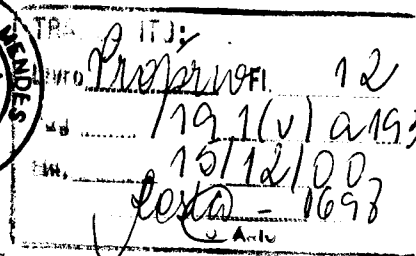 MENDES
TRA ITJ:
Próprio Fl. 12
191(v) a 193
15/12/00
Costa - 1698